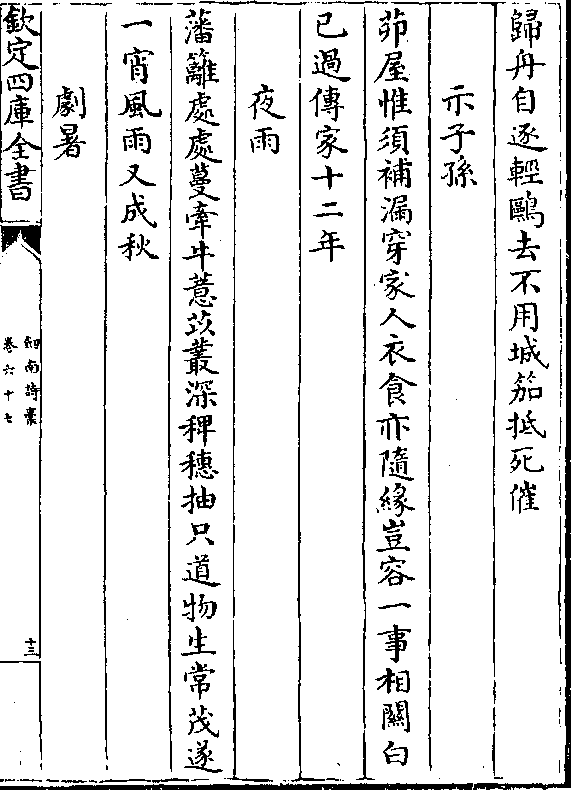 歸舟自逐輕鷗去不用城笳抵死催
示子孫
茆屋惟須補漏穿家人衣食亦隨緣豈容一事相關白
已過傳家十二年
夜雨
藩籬處處蔓牽牛薏苡叢深稗穗抽只道物生常茂遂
一宵風雨又成秋
劇暑
欽定四庫全書
劍南詩稾
卷六十七
十三